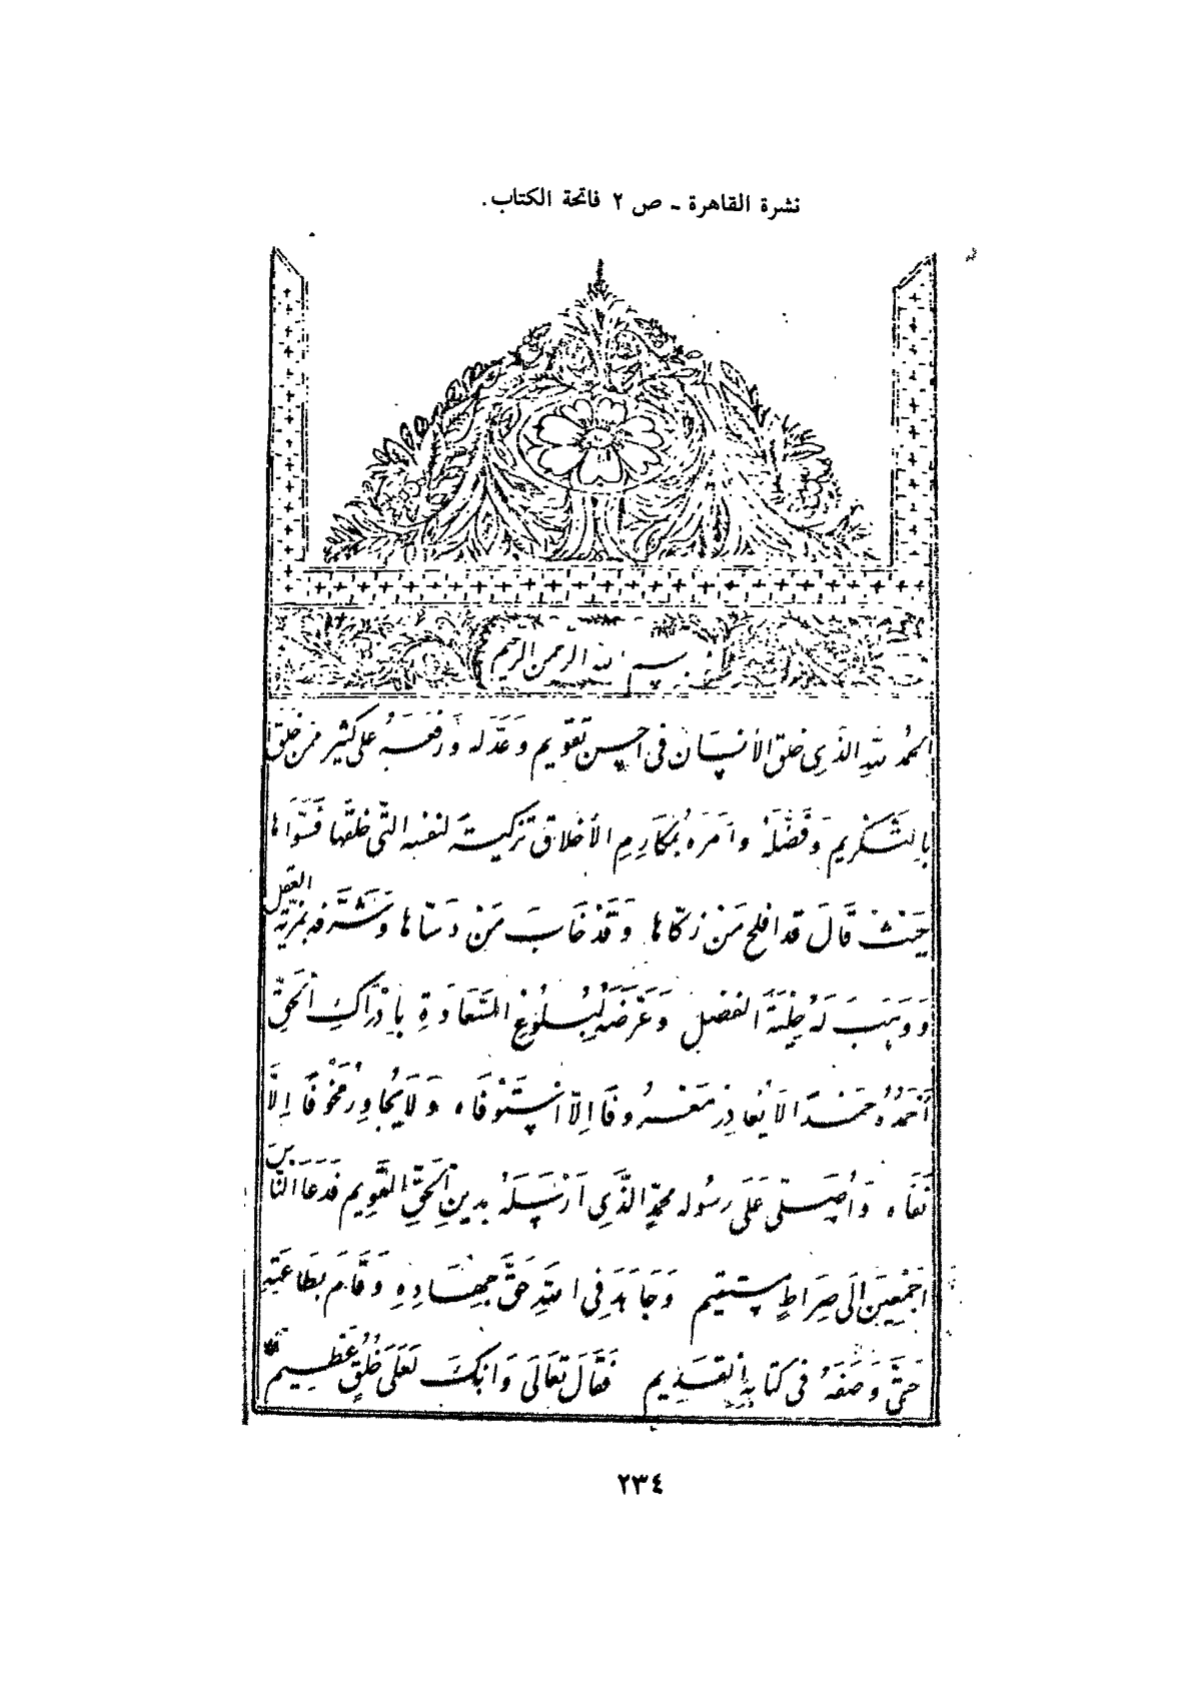 نشرة القاهرة ـ ص ٢ فاتحة الكتاب.
بسم الله الرحمن الرحيم
الحمدُ للهِ الذِي خلق الأنسَان فى احسن تقويم وَعَدَّله وَرَفَعَهُ على كثير ممن خلقَ
بِالتَّكْرِيم وَفَضَّلَهُ وامَرَهُ بمَكَارِمِ الأخلاق تزكيةً لنفسه التى خلقها فَسَوَّاها
حَيْثُ قَالَ قد افلح مَنْ زكّاها وَقَدْ خَابَ مَنْ دَسّاها وَشَرَّفه بمَزِيَّة العقل
وَوَهَبَ لَهُ حِلْيَةَ الفضل وَعَرَّضَهُ لِبُلُوغِ السَّعَادَةِ بِادْرَاكِ الحَقِّ
أَحْمَدُهُ حَمْدًا لاَ يُغَادِرُ مَعْرُوفًا اِلاّ اسْتَوْفَاه وَلاَ يُجَاوِزُ مَخُوفًا اِلاَّ
نَفَاه وَاُصَلّى عَلَى رَسُوله محمّدٍ الَّذِى اَرْسَلَهُ بدينِ الحَقِّ القَوِيم فَدَعَا النَّاسَ
اَجْمَعِينَ اِلَى صِرَاطٍ مستقيم وَجَاهَدَ فِى امّتِهِ حَقَّ جِهَادِهِ وَقَامَ بطَاعَتِهِ
حَتَّى وَصَفَهُ فى كتابِهِ القَدِيم فَقَالَ تَعَالَى وَانّكَ لَعَلَى خُلُقٍ عَظِيم
٢٣٤